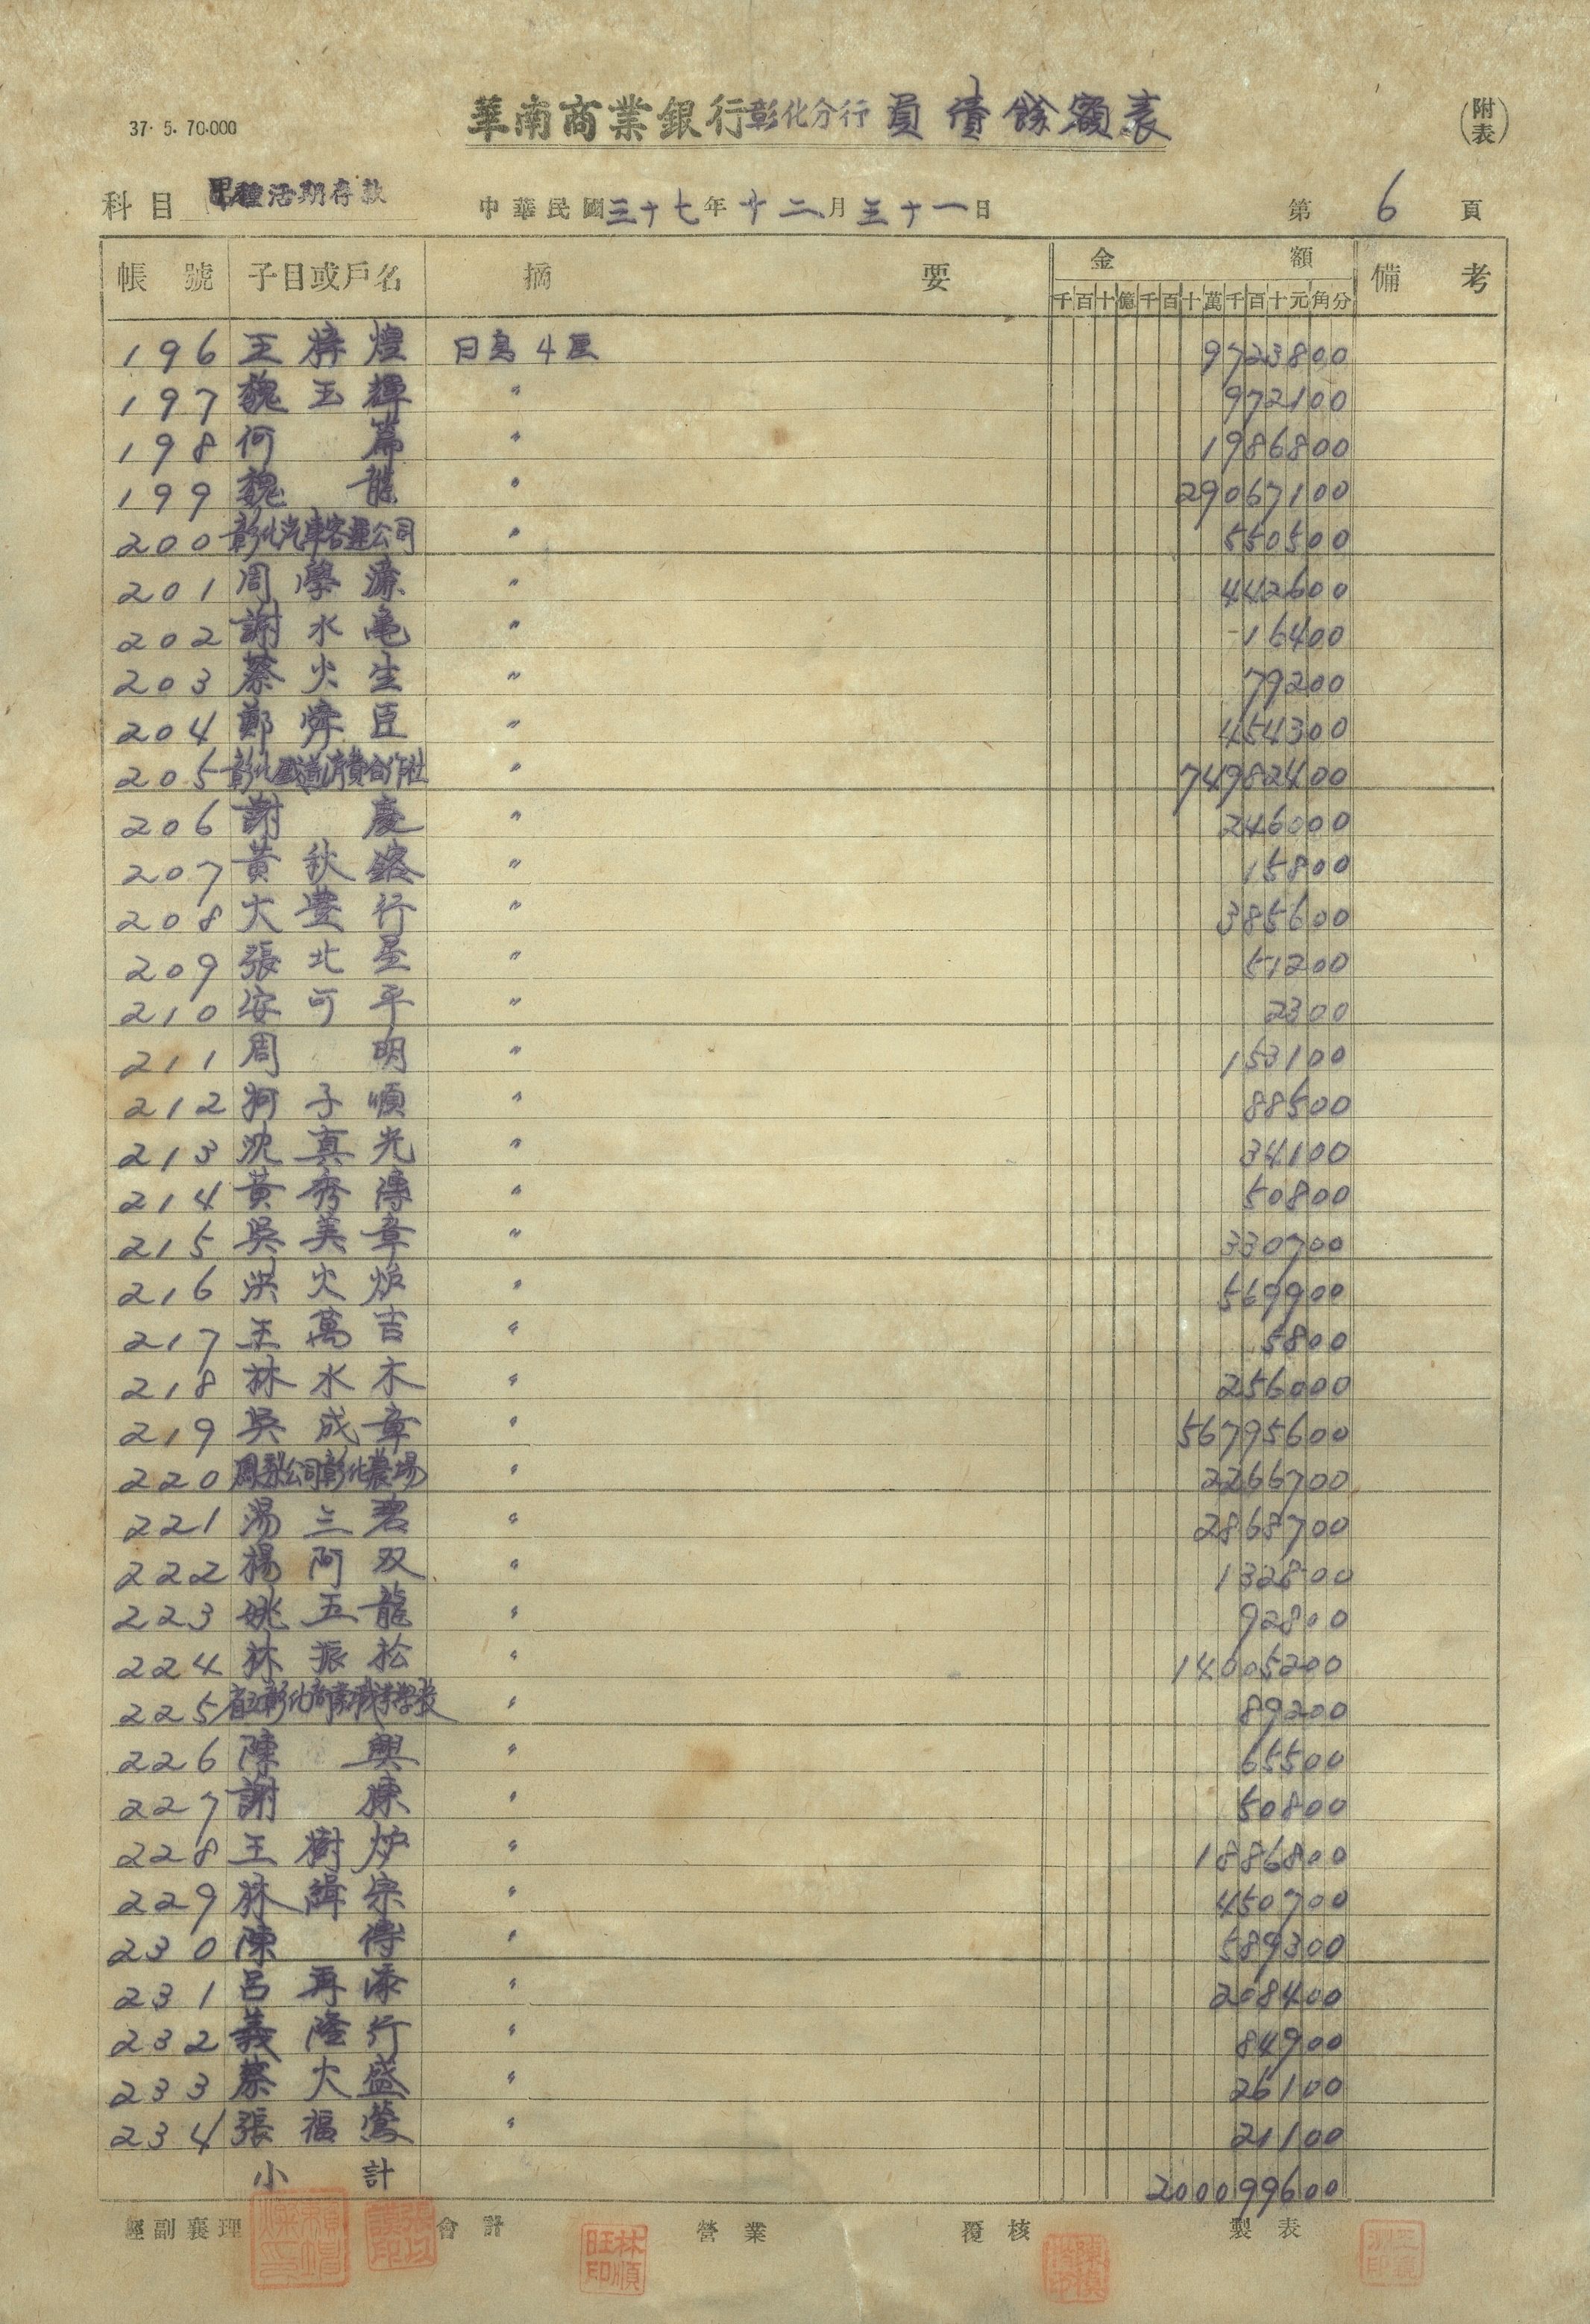 37. 5. 70.000
華南商業銀行彰化分行 負債餘額表
(附表)
科目 甲種活期存款 中華民國三十七年十二月三十一日 第 6 頁
帳號 子目或戶名 摘要 金額 備考
千百十億千百十萬千百十元角分
196 王梓煌 日息4厘 9723800
197 魏玉輝 〃 972100
198 何 篇 〃 1986800
199 魏 龍 〃 29067100
200 彰化汽車客運公司 〃 550500
201 周學濂 〃 442600
202 謝水亀 〃 -16400
203 蔡火生 〃 79200
204 鄭烽臣 〃 454300
205 彰化鐵道消費合作社 〃 74982400
206 謝 慶 〃 246000
207 黃秋鎔 〃 15800
208 大豐行 〃 385600
209 張北星 〃 51200
210 安可平 〃 2300
211 周 明 〃 153100
212 柯子順 〃 88500
213 沈真光 〃 34100
214 黃秀傳 〃 50800
215 吳美章 〃 330700
216 洪火炉 〃 569900
217 王萬吉 〃 5800
218 林水木 〃 256000
219 吳成章 〃 56795600
220 鳳梨公司彰化農場 〃 2266700
221 湯三碧 〃 2868700
222 楊阿双 〃 132800
223 姚五龍 〃 92800
224 林振松 〃 14005200
225 省立彰化商業職業學校 〃 89200
226 陳 興 〃 65500
227 謝 〃 50800
228 王樹炉 〃 1886800
229 林緝宗 〃 450700
230 陳 傳 〃 589300
231 呂再添 〃 208400
232 義隆行 〃 84900
233 蔡火盛 〃 26100
234 張福鶯 〃 21100
小計 200099600
經副襄理 會計 營業 覆核 製表
林順旺印